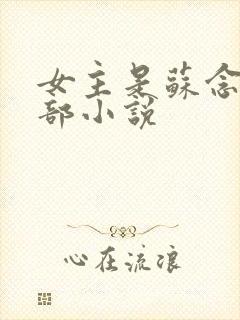 女主是蘇念
部小說
心在流浪